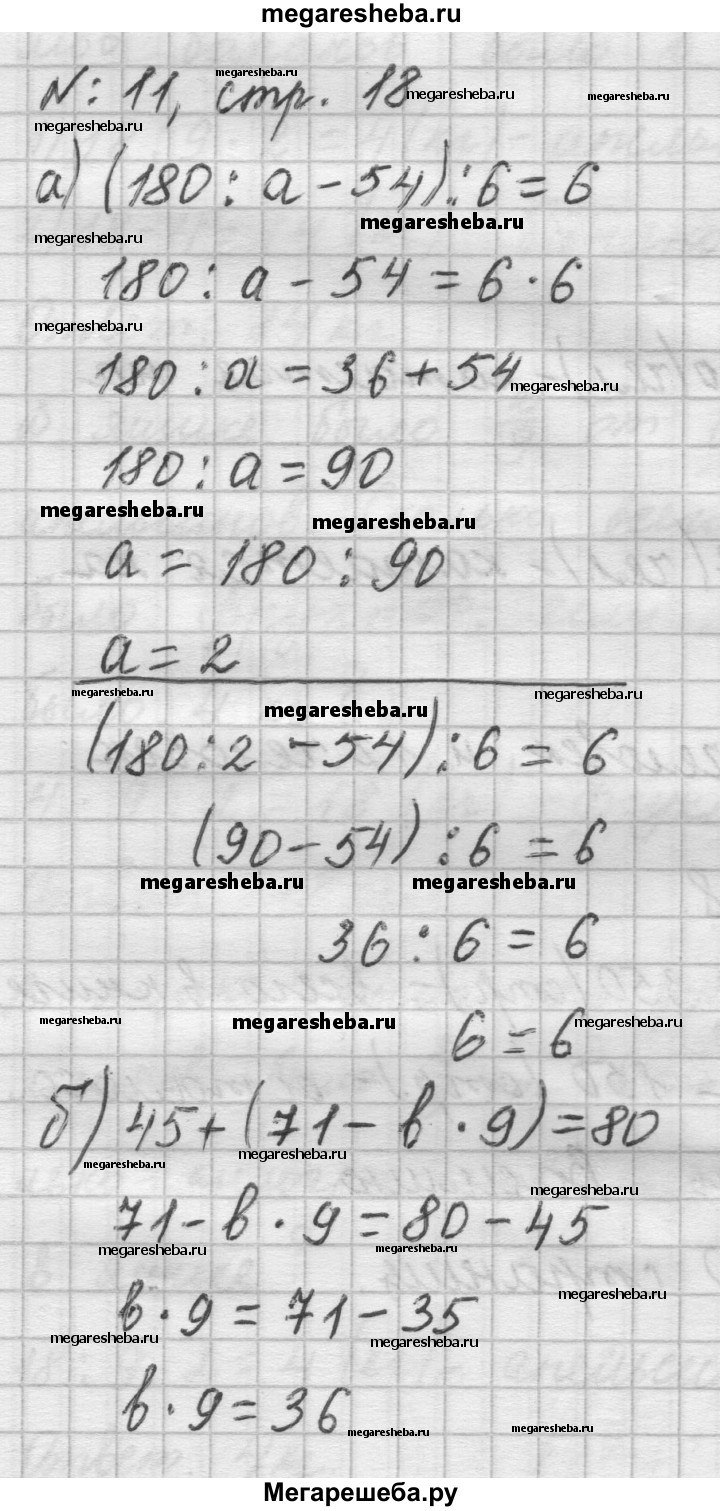 megaresheba.ru
megaresheba.ru
N: 11, стр. 18 megaresheba.ru megaresheba.ru
megaresheba.ru
а) (180 : а - 54) : 6 = 6
megaresheba.ru
megaresheba.ru
180 : а - 54 = 6 · 6
megaresheba.ru
180 : а = 36 + 54 megaresheba.ru
180 : а = 90
megaresheba.ru megaresheba.ru
а = 180 : 90
а = 2
megaresheba.ru megaresheba.ru
megaresheba.ru
(180 : 2 - 54) : 6 = 6
(90 - 54) : 6 = 6
megaresheba.ru megaresheba.ru
36 : 6 = 6
megaresheba.ru megaresheba.ru megaresheba.ru
6 = 6
б) 45 + (71 - в · 9) = 80
megaresheba.ru megaresheba.ru
megaresheba.ru
71 - в · 9 = 80 - 45
megaresheba.ru megaresheba.ru
megaresheba.ru
в · 9 = 71 - 35
megaresheba.ru megaresheba.ru
в · 9 = 36
megaresheba.ru megaresheba.ru
Мегарешеба.ру